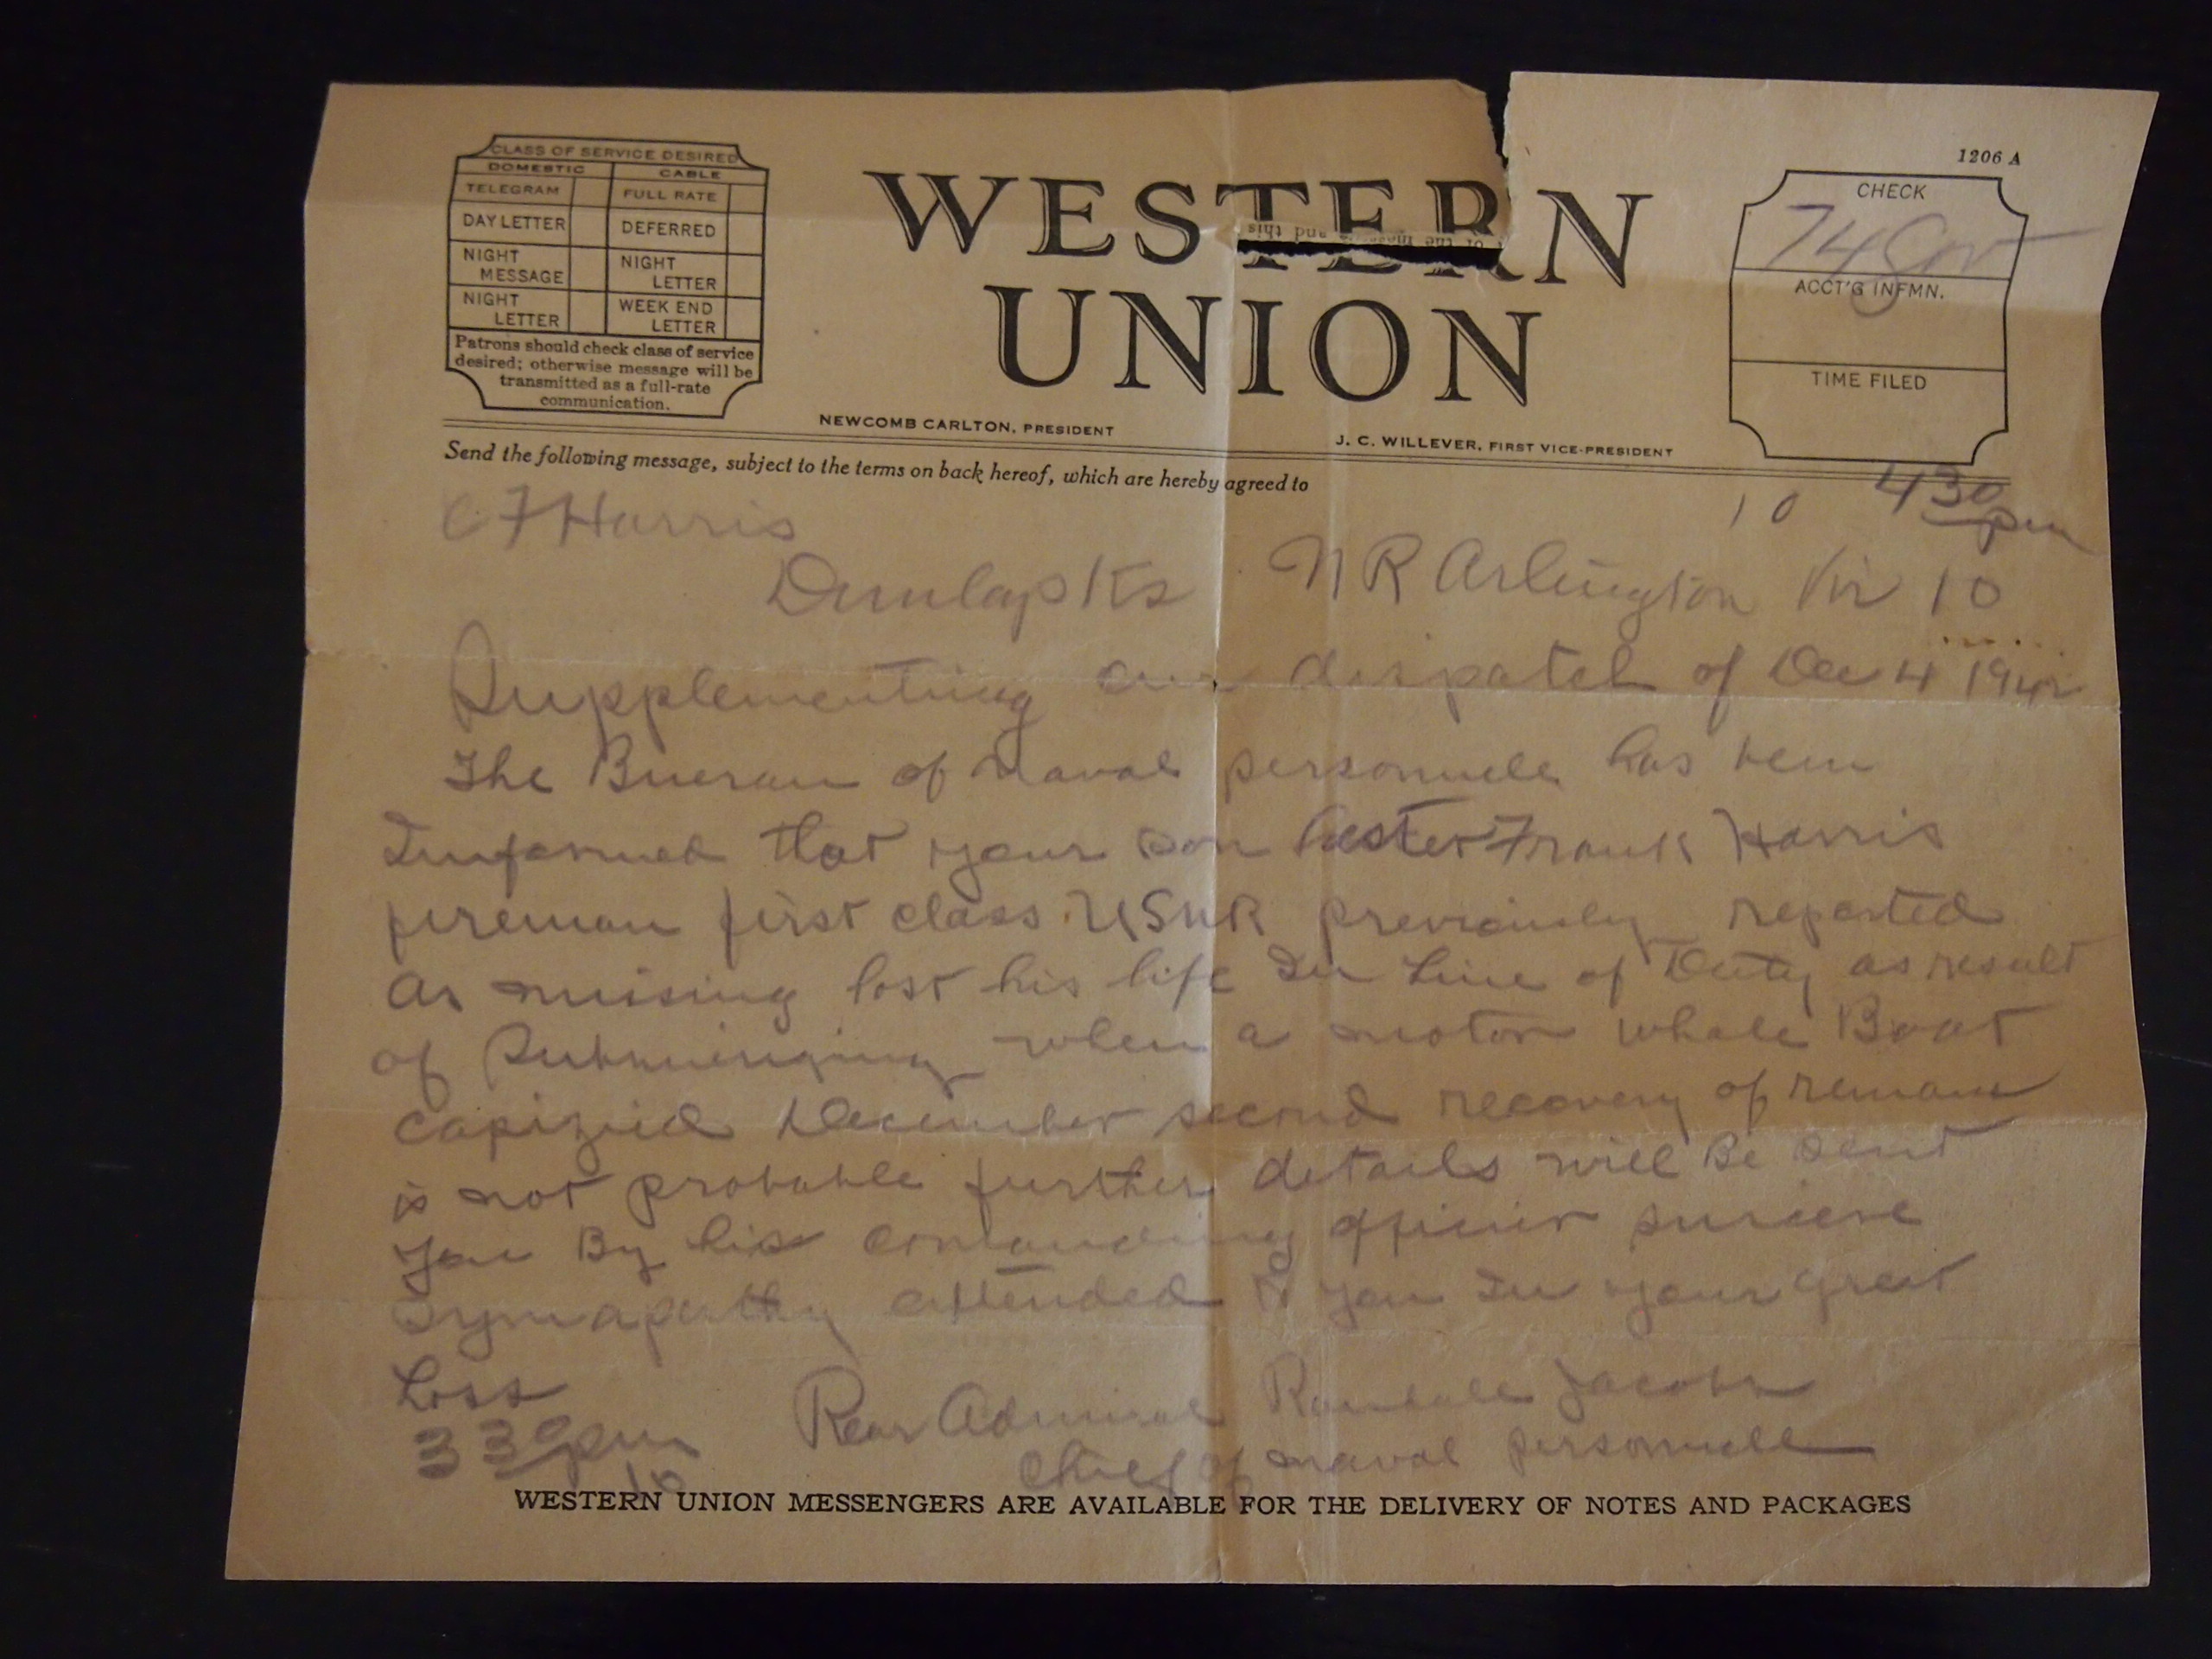 1206 A
CLASS OF SERVICE DESIRED
DOMESTIC CABLE
TELEGRAM FULL RATE
DAY LETTER DEFERRED
NIGHT MESSAGE NIGHT LETTER
NIGHT LETTER WEEK END LETTER
Patrons should check class of service
desired; otherwise message will be
transmitted as a full-rate
communication.
WESTERN
UNION
NEWCOMB CARLTON, PRESIDENT
J. C. WILLEVER, FIRST VICE-PRESIDENT
CHECK
74
ACCT'G INFMN.
TIME FILED
Send the following message, subject to the terms on back hereof, which are hereby agreed to
10 430 pm
C F Harris
Dunlap Ks NR Arlington Vir 10
Supplementing our dispatch of Dec 4 1942
The Buerau of Naval personnele has been
Informed that your son Lester Frank Harris
fireman first class USNR previously reported
as missing lost his life In Line of Duty as result
of Submerging when a motor whale Boat
capizied December second recovery of remains
is not probable further details will Be sent
you By his comanding officier sincere
Sympathy extended to you In your great
Loss
330 pm
10
Rear Admiral Randall Jacobs
Chief of naval personnell
WESTERN UNION MESSENGERS ARE AVAILABLE FOR THE DELIVERY OF NOTES AND PACKAGES